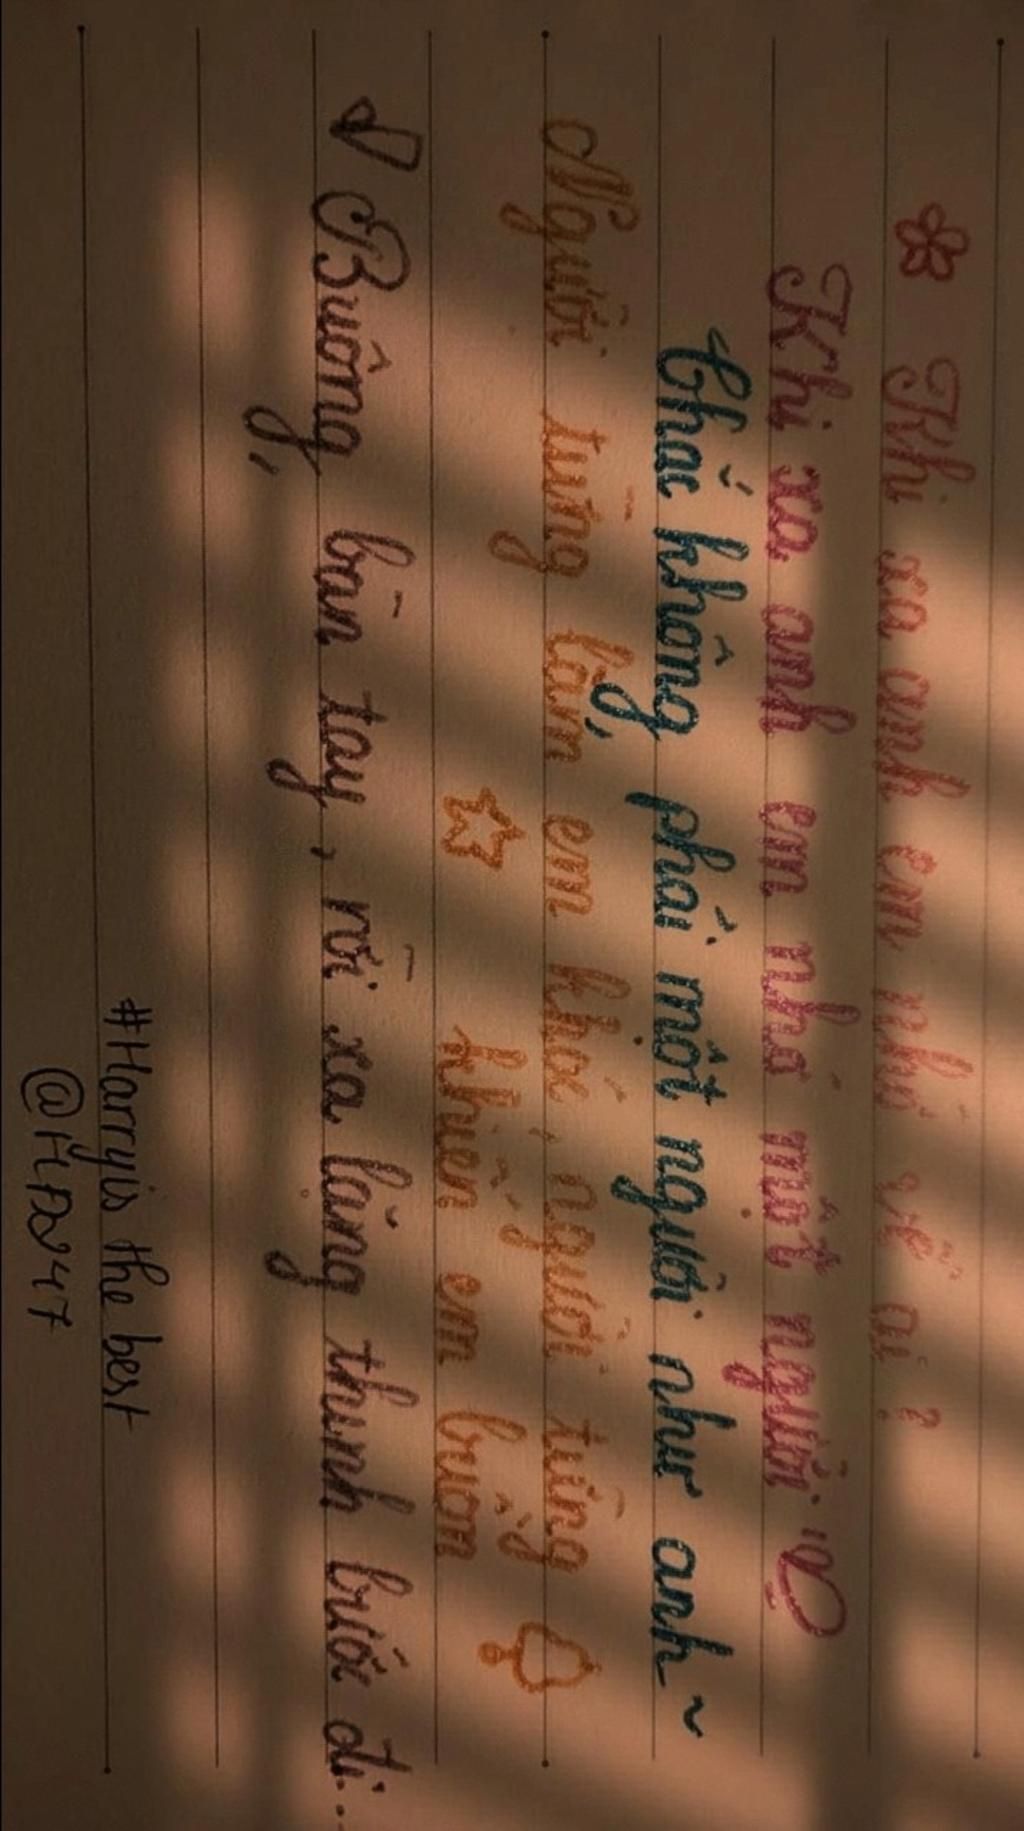 Khi xa anh em nhớ về ai?
Khi xa anh em nhớ một người
Chắc không phải một người như anh ~
Người từng làm em khóc, người từng
khiến em buồn
Buông bàn tay, rồi xa lặng thinh bước đi...
#Harryis the best